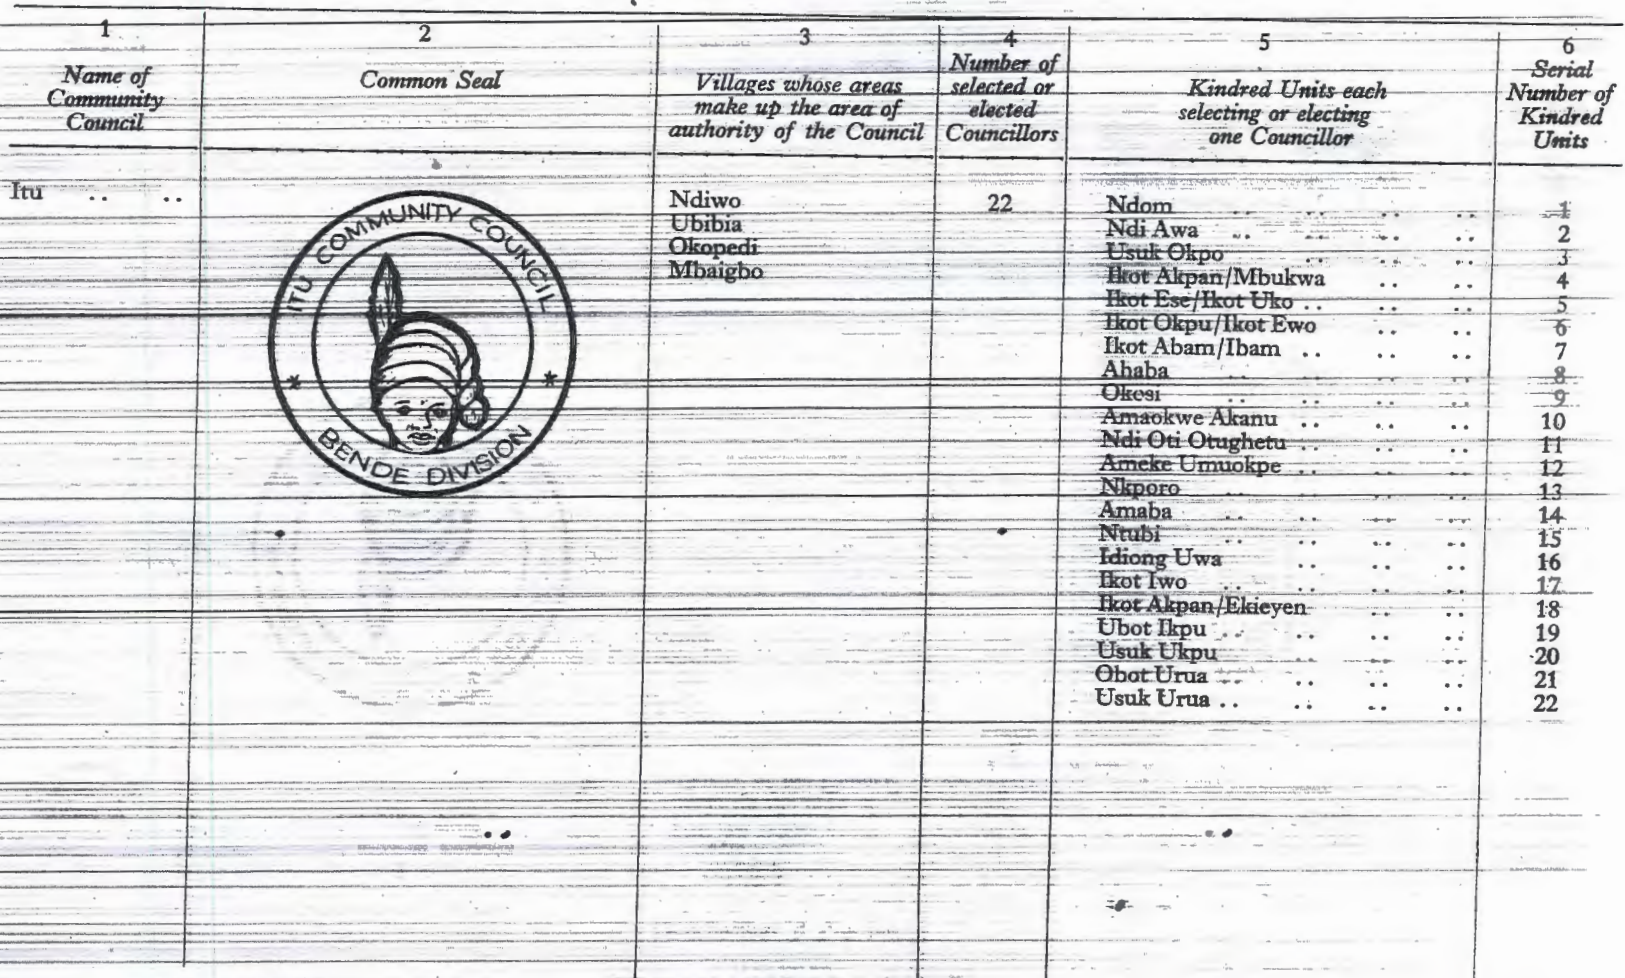 1
2
3
4
5
6
Name of
Community
Council
Common Seal
Villages whose areas
make up the area of
authority of the Council
Number of
selected or
elected
Councillors
Kindred Units each
selecting or electing
one Councillor
Serial
Number of
Kindred
Units
Itu .. ..
ITU COMMUNITY COUNCIL
* *
BENDE DIVISION
Ndiwo
Ubibia
Okopedi
Mbaigbo
22
Ndom .. .. .. .. 1
Ndi Awa .. .. .. .. 2
Usuk Okpo .. .. .. .. 3
Ikot Akpan/Mbukwa .. .. 4
Ikot Ese/Ikot Uko .. .. .. 5
Ikot Okpu/Ikot Ewo .. .. 6
Ikot Abam/Ibam .. .. .. 7
Ahaba .. .. .. .. 8
Okesi .. .. .. .. 9
Amaokwe Akanu .. .. .. 10
Ndi Oti Otughetu .. .. .. 11
Ameke Umuokpe .. .. .. 12
Nkporo .. .. .. .. 13
Amaba .. .. .. .. 14
Ntubi .. .. .. .. 15
Idiong Uwa .. .. .. 16
Ikot Iwo .. .. .. .. 17
Ikot Akpan/Ekieyen .. .. 18
Ubot Ikpu .. .. .. .. 19
Usuk Ukpu .. .. .. 20
Obot Urua .. .. .. .. 21
Usuk Urua .. .. .. .. 22